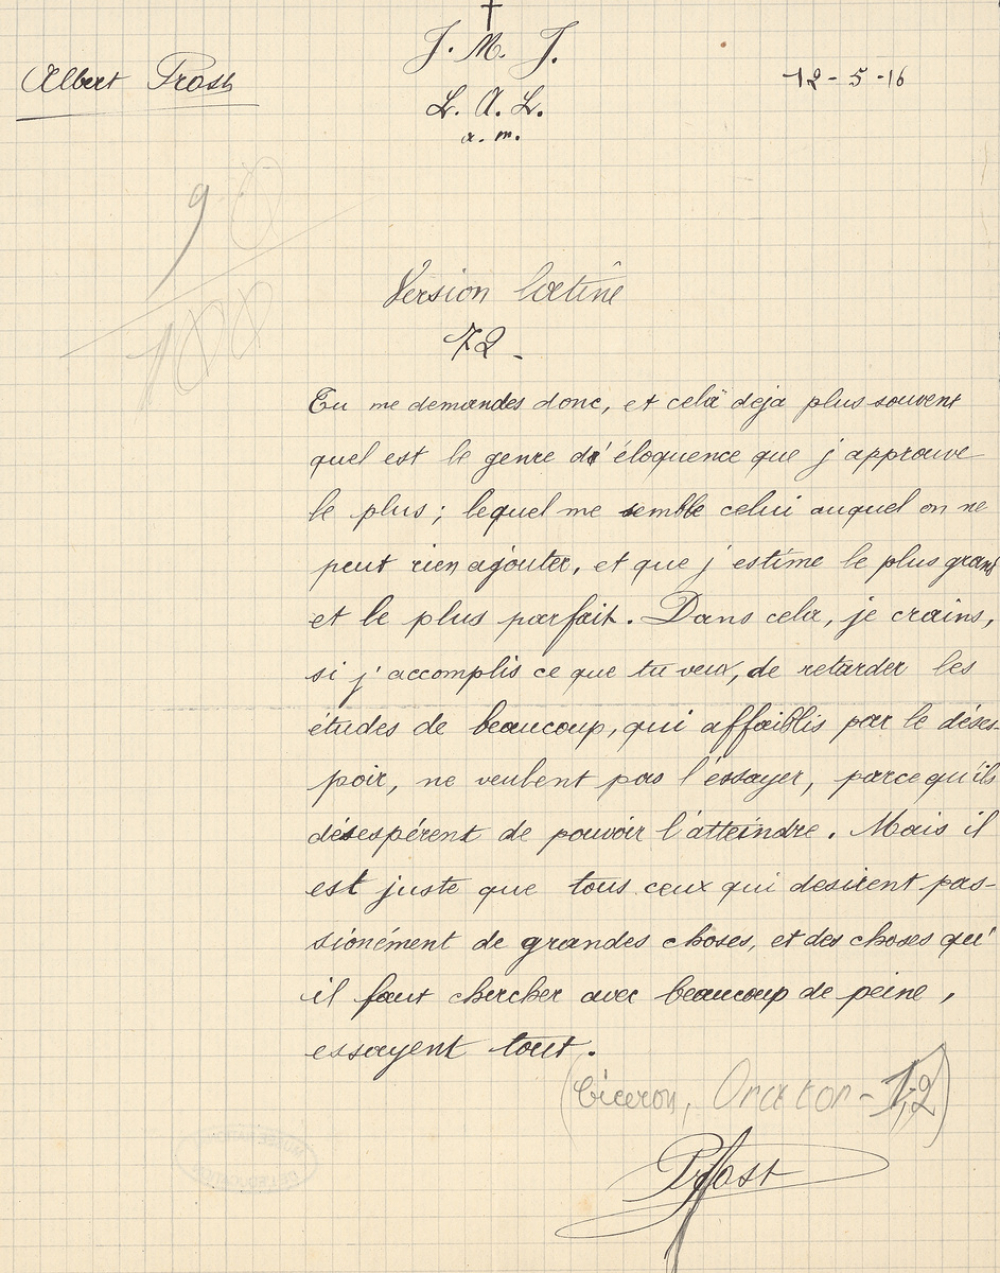 Albert Prost
J. M. J.
L. A. L.
a. m.
12-5-16
9
Version latine
72.
Tu me demandes donc, et celà déjà plus souvent
quel est le genre d'éloquence que j'approuve
le plus ; lequel me semble celui auquel on ne
peut rien ajouter, et que j'estime le plus grand
et le plus parfait. Dans cela, je crains,
si j'accomplis ce que tu veux, de retarder les
études de beaucoup, qui affaiblis par le déses-
poir, ne veulent pas l'essayer, parce qu'ils
désespérent de pouvoir l'atteindre. Mais il
est juste que tous ceux qui desirent pas-
sionément de grandes choses, et des choses qu'
il faut chercher avec beaucoup de peine,
essayent tout.
(Cicéron, Orator - 1,2)
Prost